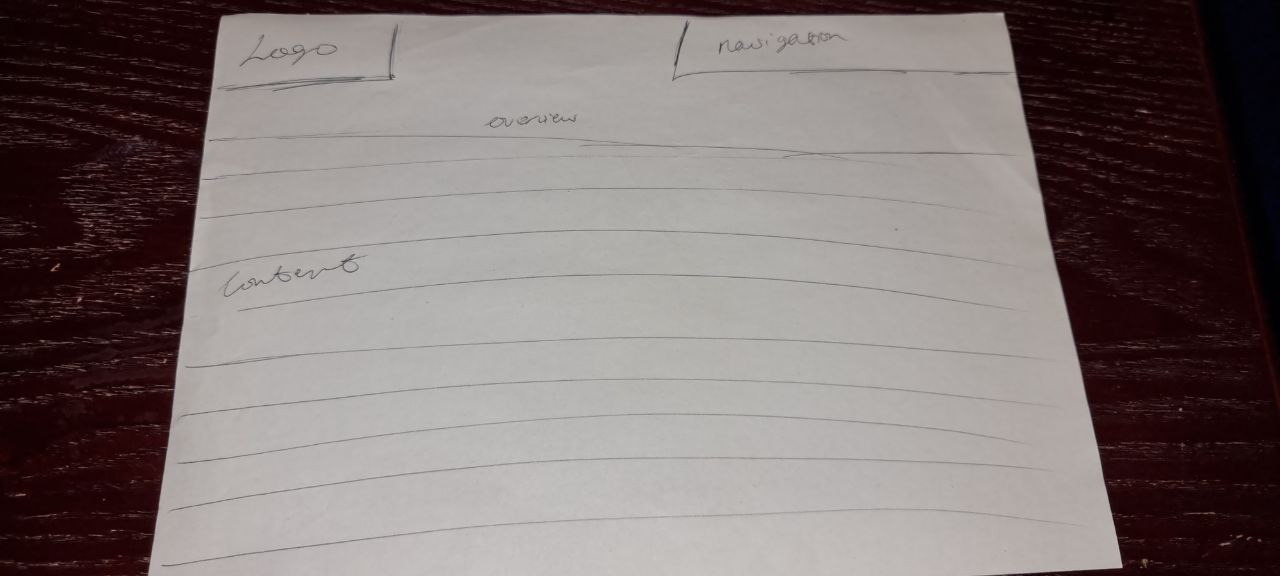 Logo
navigation
overview
Content